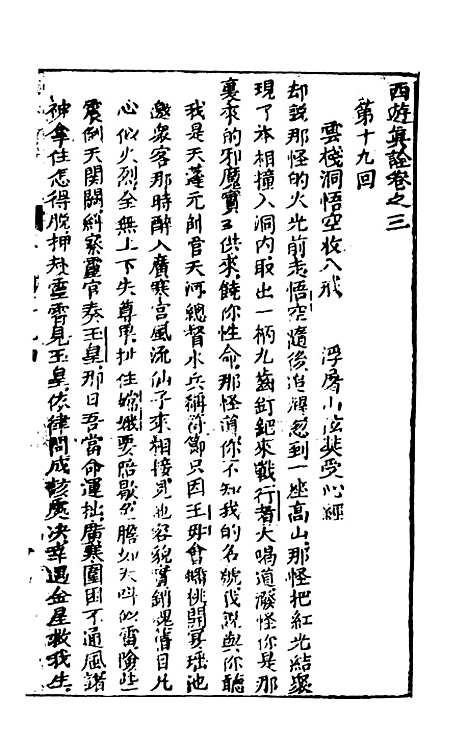 西遊真詮卷之三
第十九回
雲棧洞悟空收八戒　浮屠山玄奘受心經
却說那怪的火光前走悟空隨後追趕忽到一座高山那怪把紅光結聚
現了本相撞入洞內取出一柄九齒釘鈀來戰行者大喝道潑怪你是那
裏來的邪魔實〻供來饒你性命那怪道你不知我的名號我說與你聽
我是天蓬元帥官天河總督水兵稱符節只因王母會蟠桃開宴瑤池
邀衆客那時醉入廣寒宮風流仙子來相接見他容貌實銷魂舊日凡
心似火烈全無上下失尊卑扯住嫦娥要陪歇色膽如天叫似雷險些
震倒天關闕糾察靈官奏玉皇那日吾當命運拙廣寒圍困不通風諸
神拿住怎得脫押赴靈霄見玉皇依律問成該處決幸遇金星救我生